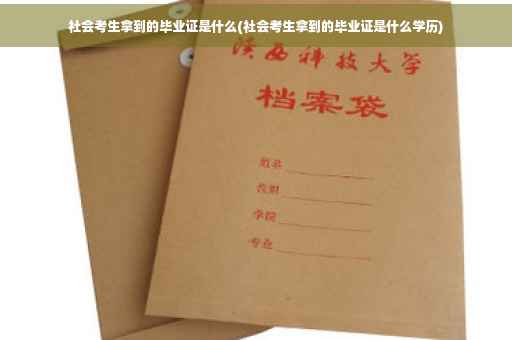 社会考生拿到的毕业证是什么(社会考生拿到的毕业证是什么学历)
陕西科技大学
档案袋
姓名
学院
专业